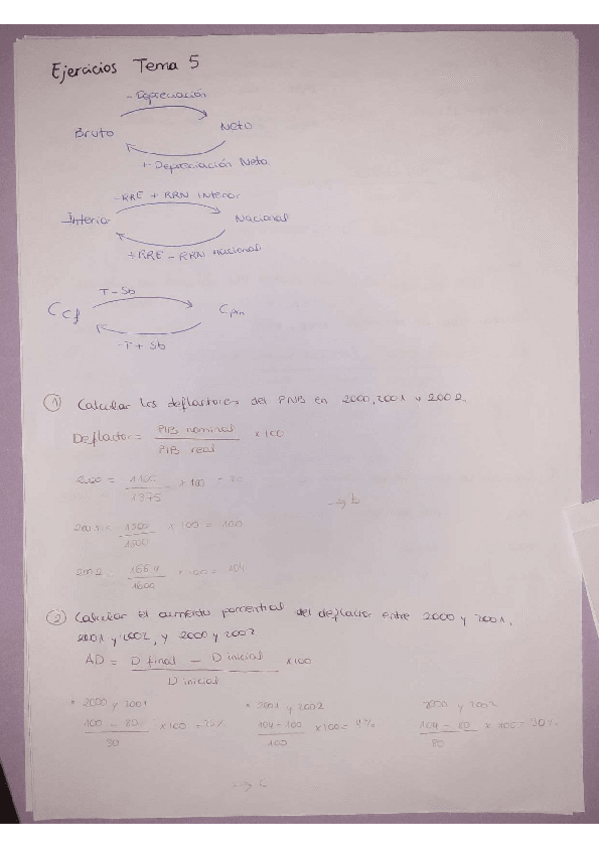 Ejercicios Tema 5
- Depreciación
Bruto Neto
+ Depreciación Neta
-RRE + RRN Interior
Interior Nacional
+RRE - RRN Nacional
T - Sb
Ccf Cpm
-T + Sb
① Calcular los deflactores del PNB en 2000, 2001 y 2002.
Deflactor = PIB nominal / PIB real x 100
2000 = 1100 / 1375 x 100 = 80
→ b
2001 = 1500 / 1500 x 100 = 100
2002 = 1664 / 1600 x 100 = 104
② Calcular el aumento porcentual del deflactor entre 2000 y 2001,
2001 y 2002, y 2000 y 2002
AD = D final - D inicial / D inicial x 100
* 2000 y 2001 * 2001 y 2002 2000 y 2002
100 - 80 / 80 x 100 = 25% 104 - 100 / 100 x 100 = 4% 104 - 80 / 80 x 100 = 30%
→ c